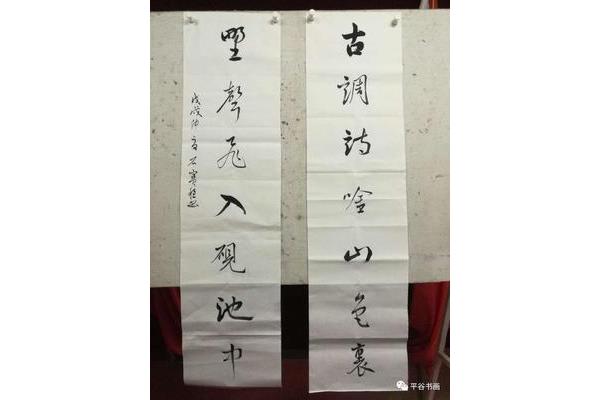 古調詩唫山色裏
野聲飛入硯池中
戊戌仲夏
平谷书画